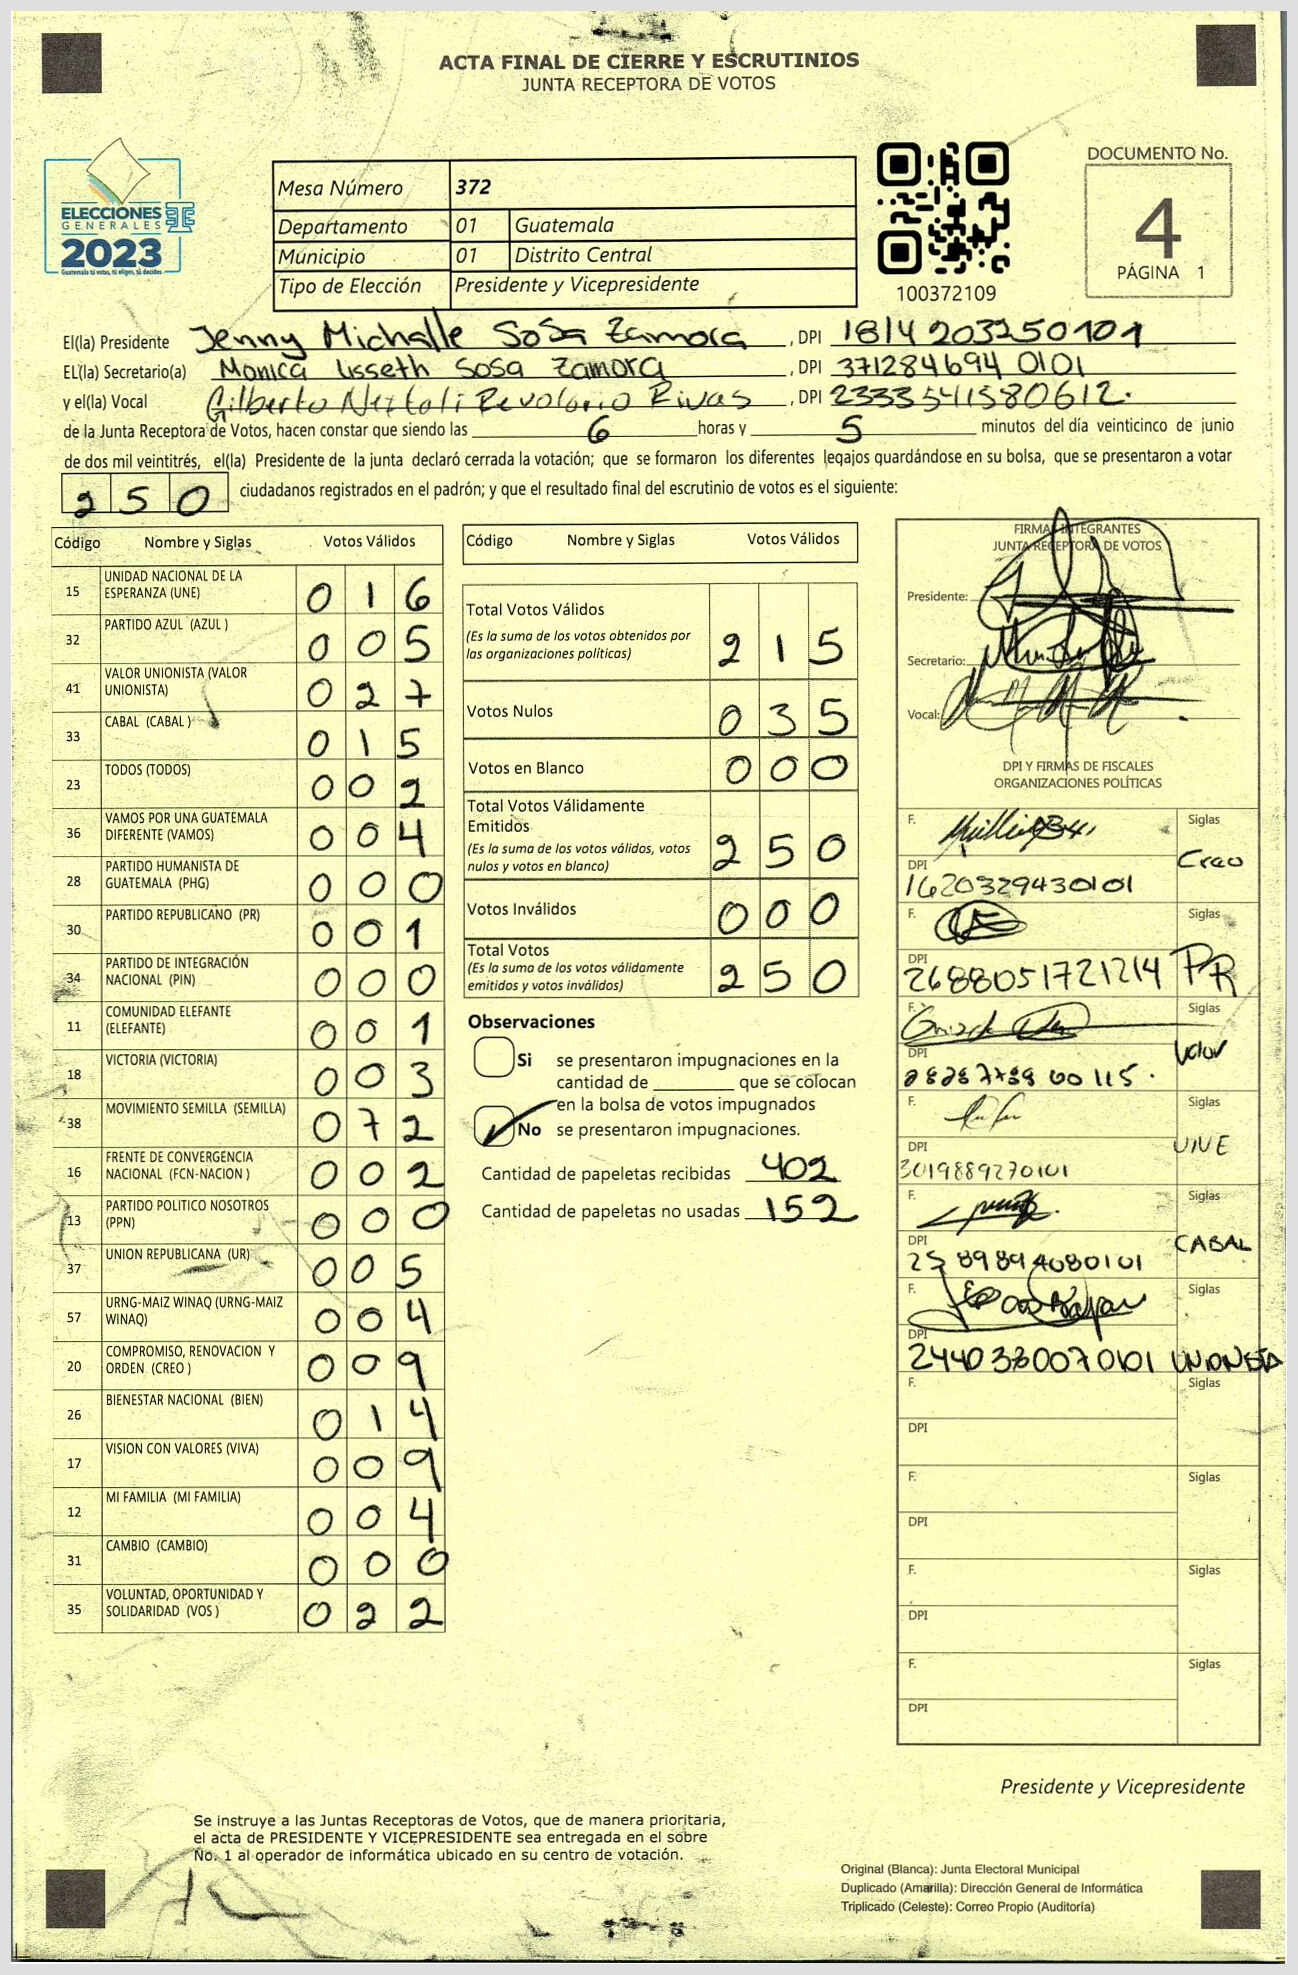 ACTA FINAL DE CIERRE Y ESCRUTINIOS
JUNTA RECEPTORA DE VOTOS
ELECCIONES
GENERALES
2023
Guatemala tú votas, tú eliges, tú decides
Mesa Número 372
Departamento 01 Guatemala
Municipio 01 Distrito Central
Tipo de Elección Presidente y Vicepresidente
100372109
DOCUMENTO No.
4
PÁGINA 1
El(la) Presidente Jenny Michalle Sosa Zamora, DPI 1814203250101
EL(la) Secretario(a) Monica Lisseth Sosa Zamora, DPI 3712846940101
y el(la) Vocal Gilberto Neftali Revolorio Rivas, DPI 2333541580612.
de la Junta Receptora de Votos, hacen constar que siendo las 6 horas y 5 minutos del día veinticinco de junio
de dos mil veintitrés, el(la) Presidente de la junta declaró cerrada la votación; que se formaron los diferentes legajos guardándose en su bolsa, que se presentaron a votar
250 ciudadanos registrados en el padrón; y que el resultado final del escrutinio de votos es el siguiente:
Código Nombre y Siglas Votos Válidos
15 UNIDAD NACIONAL DE LA ESPERANZA (UNE) 016
32 PARTIDO AZUL (AZUL ) 005
41 VALOR UNIONISTA (VALOR UNIONISTA) 027
33 CABAL (CABAL ) 015
23 TODOS (TODOS) 002
36 VAMOS POR UNA GUATEMALA DIFERENTE (VAMOS) 004
28 PARTIDO HUMANISTA DE GUATEMALA (PHG) 000
30 PARTIDO REPUBLICANO (PR) 001
34 PARTIDO DE INTEGRACIÓN NACIONAL (PIN) 000
11 COMUNIDAD ELEFANTE (ELEFANTE) 001
18 VICTORIA (VICTORIA) 003
38 MOVIMIENTO SEMILLA (SEMILLA) 072
16 FRENTE DE CONVERGENCIA NACIONAL (FCN-NACION ) 002
13 PARTIDO POLITICO NOSOTROS (PPN) 000
37 UNION REPUBLICANA (UR) 005
57 URNG-MAIZ WINAQ (URNG-MAIZ WINAQ) 004
20 COMPROMISO, RENOVACION Y ORDEN (CREO ) 009
26 BIENESTAR NACIONAL (BIEN) 014
17 VISION CON VALORES (VIVA) 009
12 MI FAMILIA (MI FAMILIA) 004
31 CAMBIO (CAMBIO) 000
35 VOLUNTAD, OPORTUNIDAD Y SOLIDARIDAD (VOS ) 022
Código Nombre y Siglas Votos Válidos
Total Votos Válidos 215
(Es la suma de los votos obtenidos por
las organizaciones políticas)
Votos Nulos 035
Votos en Blanco 000
Total Votos Válidamente
Emitidos 250
(Es la suma de los votos válidos, votos
nulos y votos en blanco)
Votos Inválidos 000
Total Votos 250
(Es la suma de los votos válidamente
emitidos y votos inválidos)
Observaciones
Si se presentaron impugnaciones en la
cantidad de ________ que se colocan
en la bolsa de votos impugnados
No se presentaron impugnaciones.
Cantidad de papeletas recibidas 402
Cantidad de papeletas no usadas 152
FIRMAS INTEGRANTES
JUNTA RECEPTORA DE VOTOS
Presidente:
Secretario:
Vocal:
DPI Y FIRMAS DE FISCALES
ORGANIZACIONES POLÍTICAS
F. Siglas
Creo
DPI
1620329430101
F. Siglas
DPI
2688051721214 PR
F. Siglas
Valor
DPI
F. Siglas
DPI
VIVE
3019889270101
F. Siglas
DPI
CABAL
2589894080101
F. Siglas
DPI
2440330070101
F. Siglas
DPI
F. Siglas
DPI
F. Siglas
DPI
F. Siglas
DPI
Presidente y Vicepresidente
Se instruye a las Juntas Receptoras de Votos, que de manera prioritaria,
el acta de PRESIDENTE Y VICEPRESIDENTE sea entregada en el sobre
No. 1 al operador de informática ubicado en su centro de votación.
Original (Blanca): Junta Electoral Municipal
Duplicado (Amarilla): Dirección General de Informática
Triplicado (Celeste): Correo Propio (Auditoría)